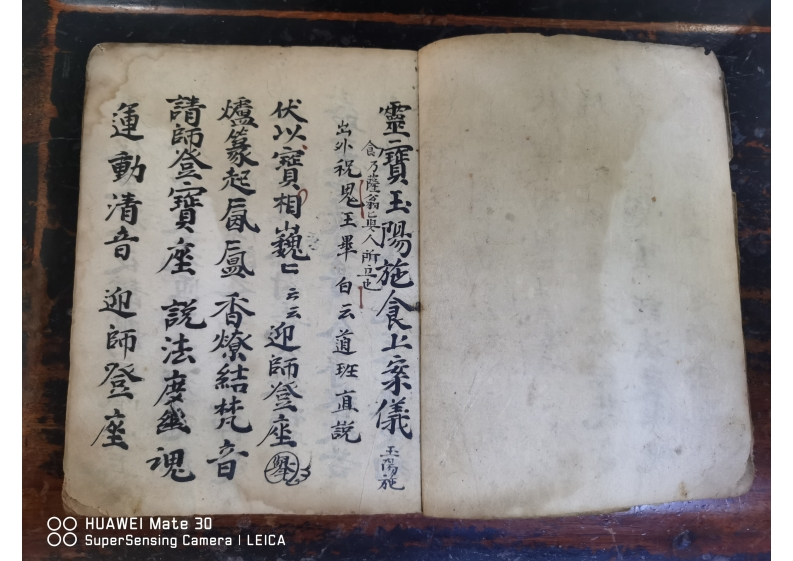 靈寶玉陽施食上案儀 玉陽施
食乃薩翁真人所立也
出外祝鬼王畢 白云道班直説
伏以寶相巍〻 云云 迎師登座
爐篆起氤氳 香燎結梵音
請師登寶座 説法度幽魂
運動清音 迎師登座
HUAWEI Mate 30
SuperSensing Camera | LEICA